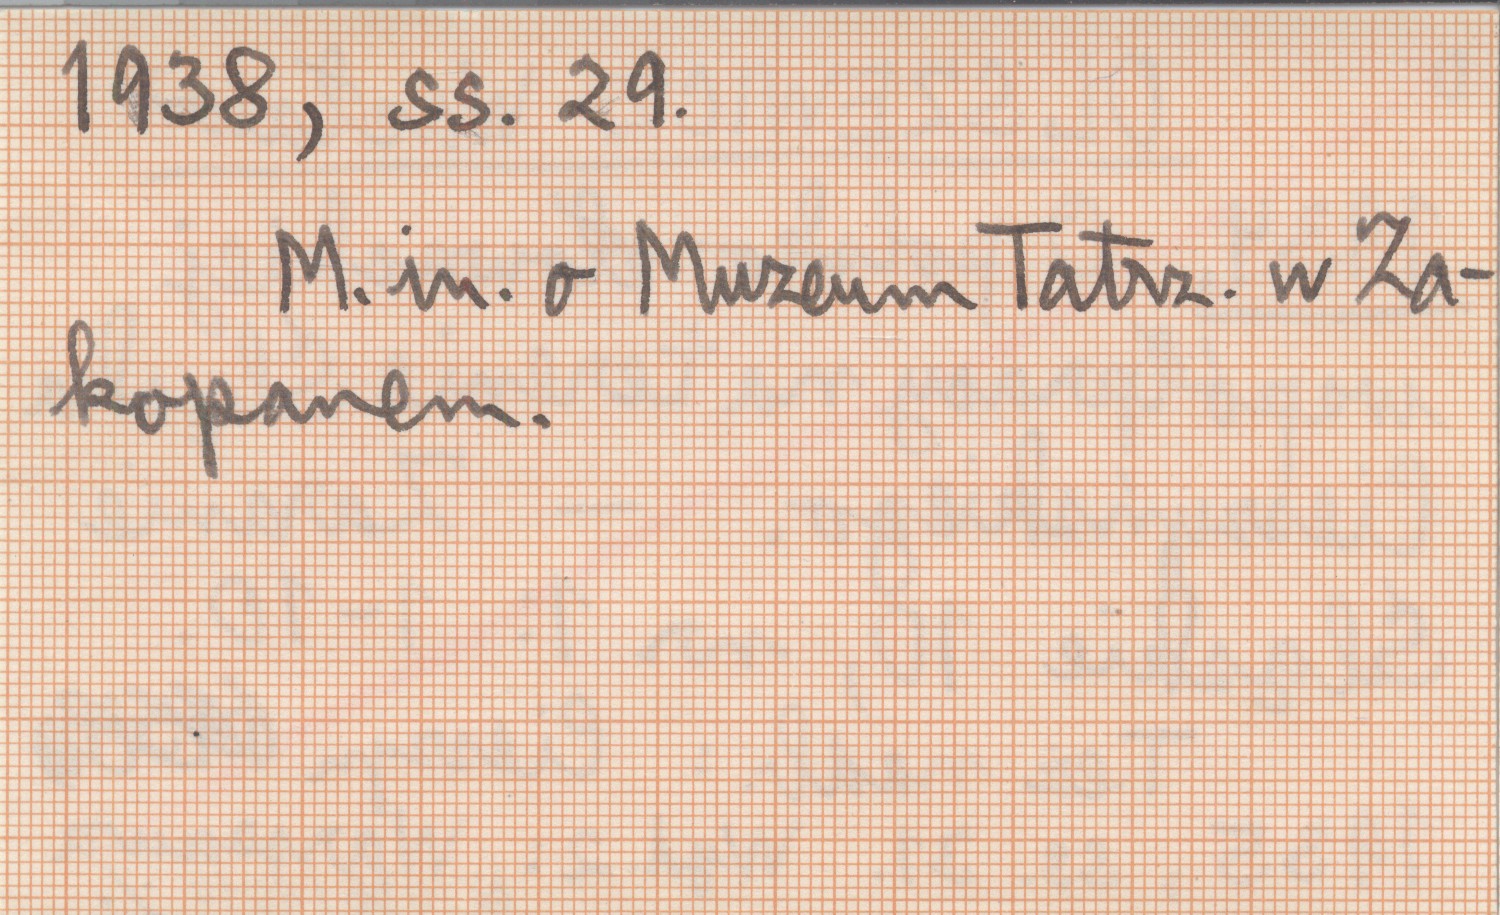 1938, ss. 29.
M. in. o Muzeum Tatrz. w Za-
kopanem.